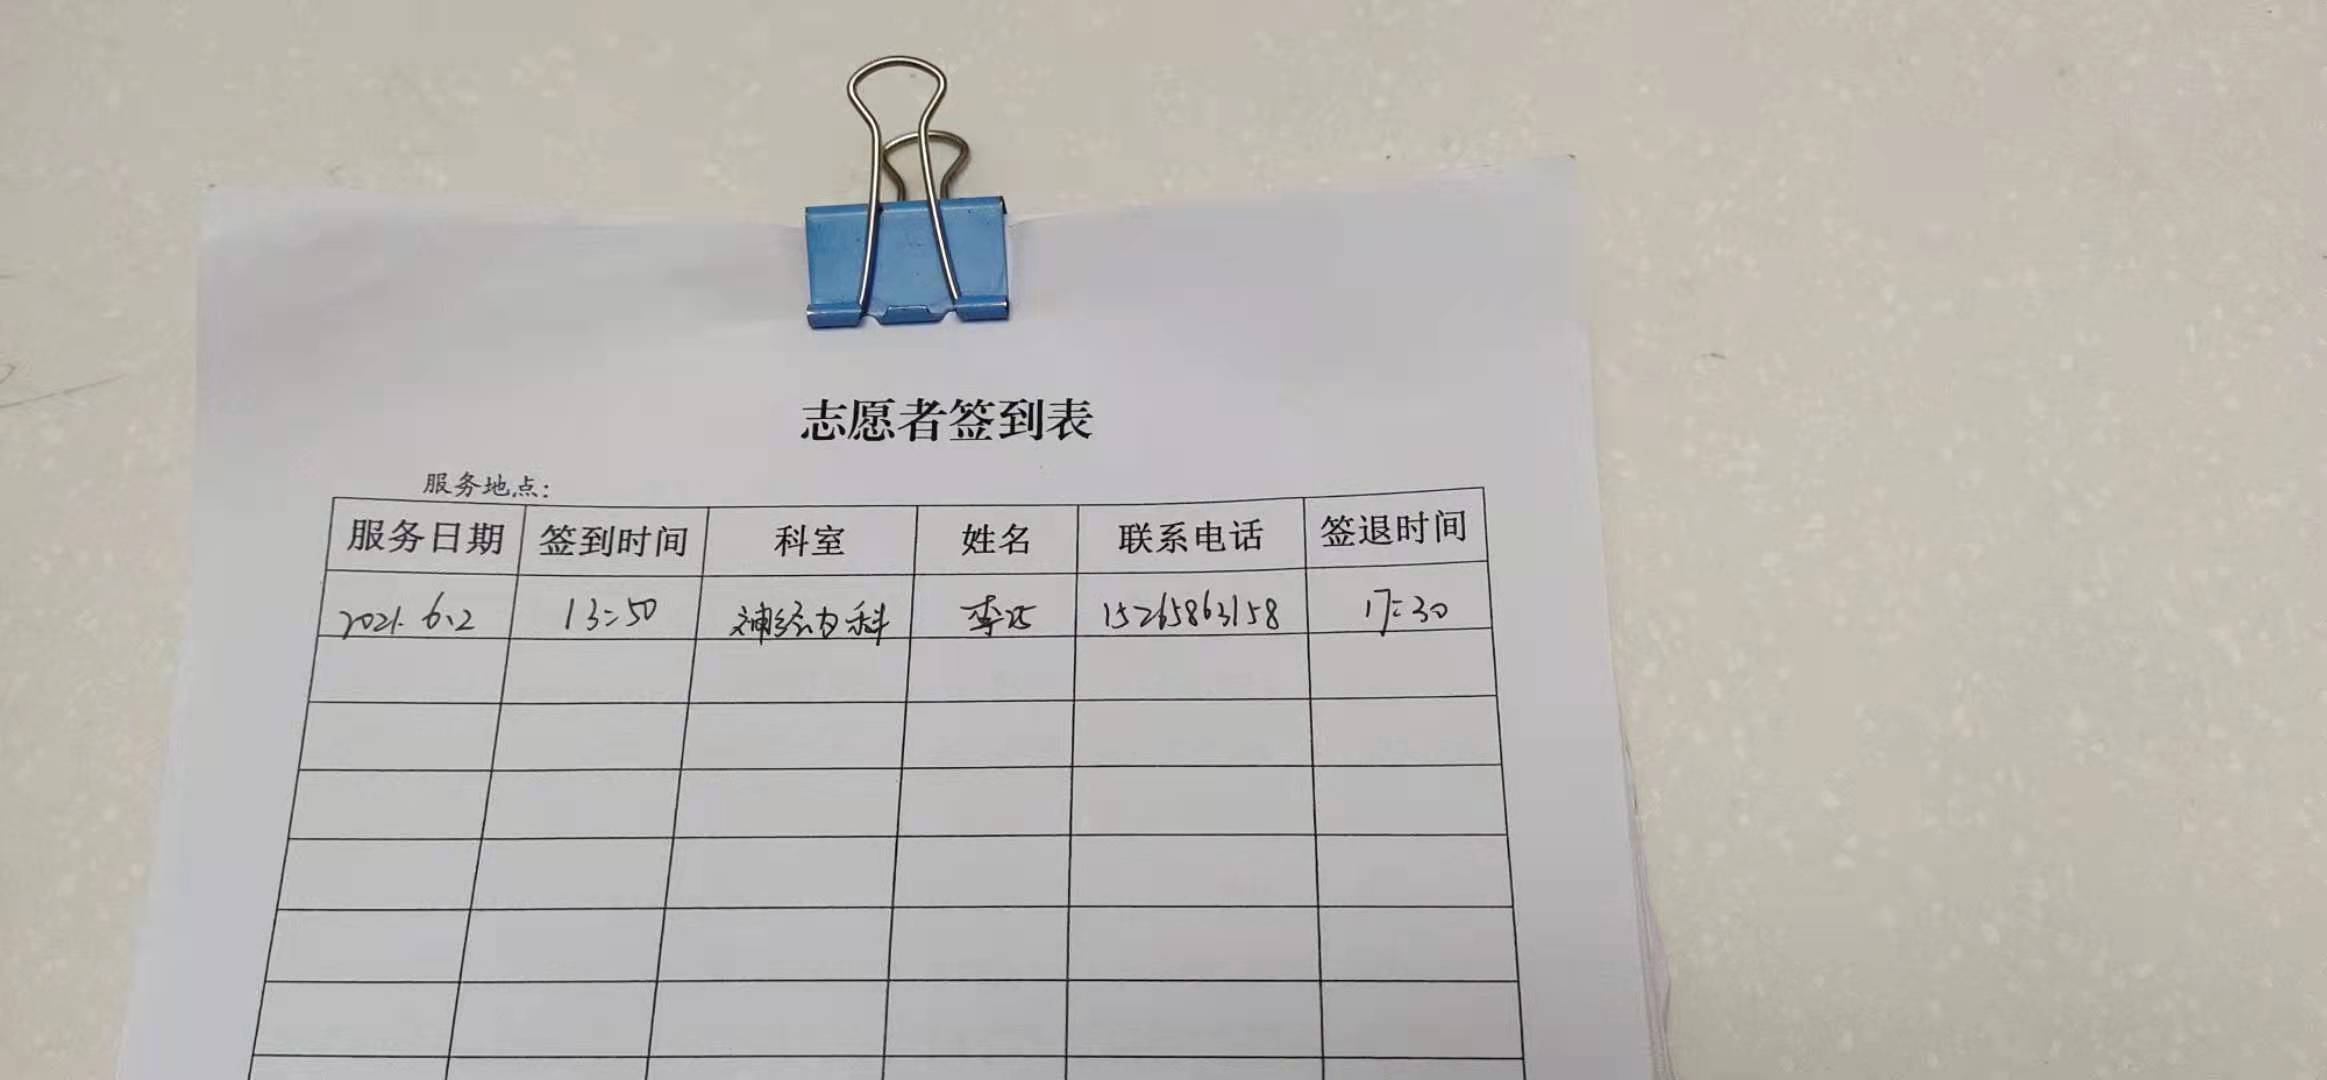 志愿者签到表
服务地点：
服务日期 签到时间 科室 姓名 联系电话 签退时间
2021.6.2 13:50 神经内科 李 15265863158 17:30